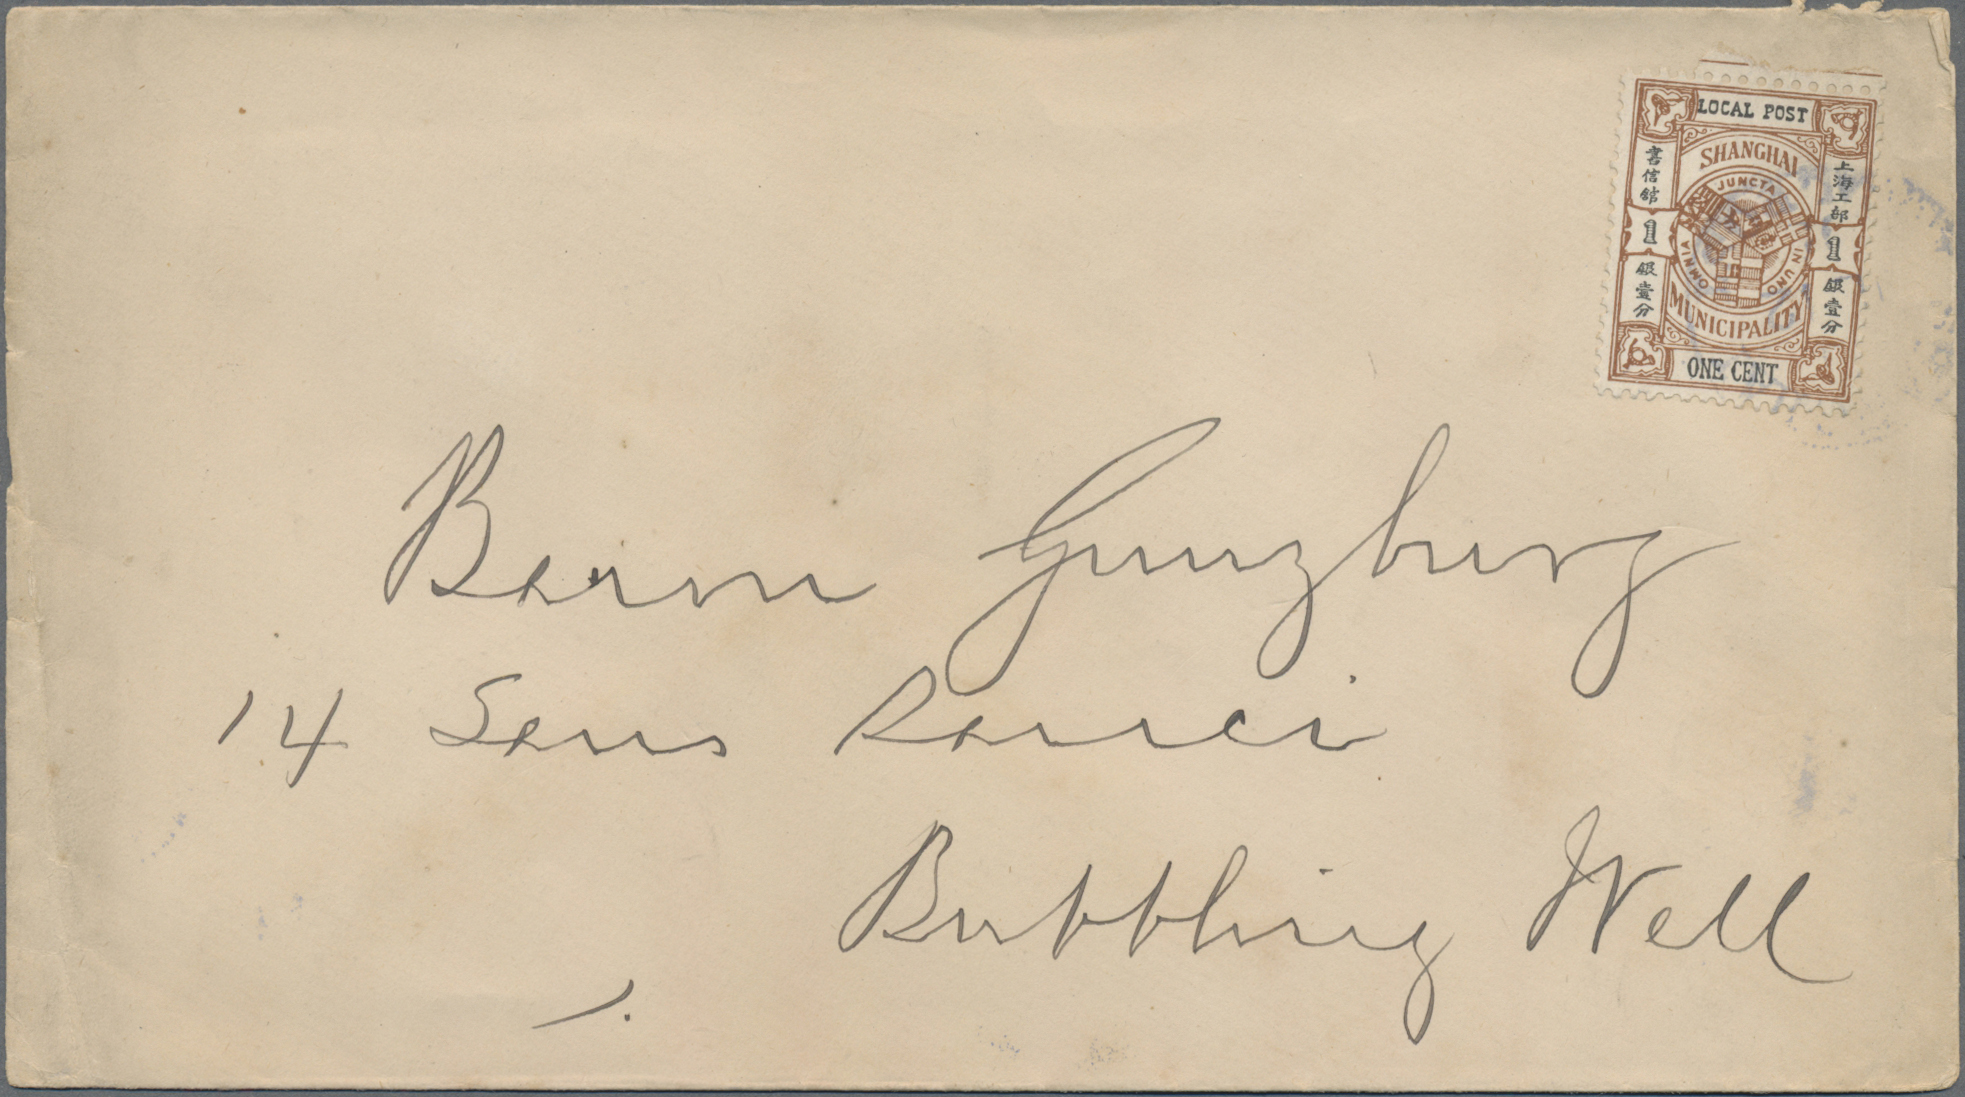 LOCAL POST
SHANGHAI
JUNCTA IN UNO OMNIA
MUNICIPALITY
ONE CENT
上海工部
書信館
1
1
銀壹分
銀壹分
Baron Gunzburg
14 Sans Souci
Bubbling Well